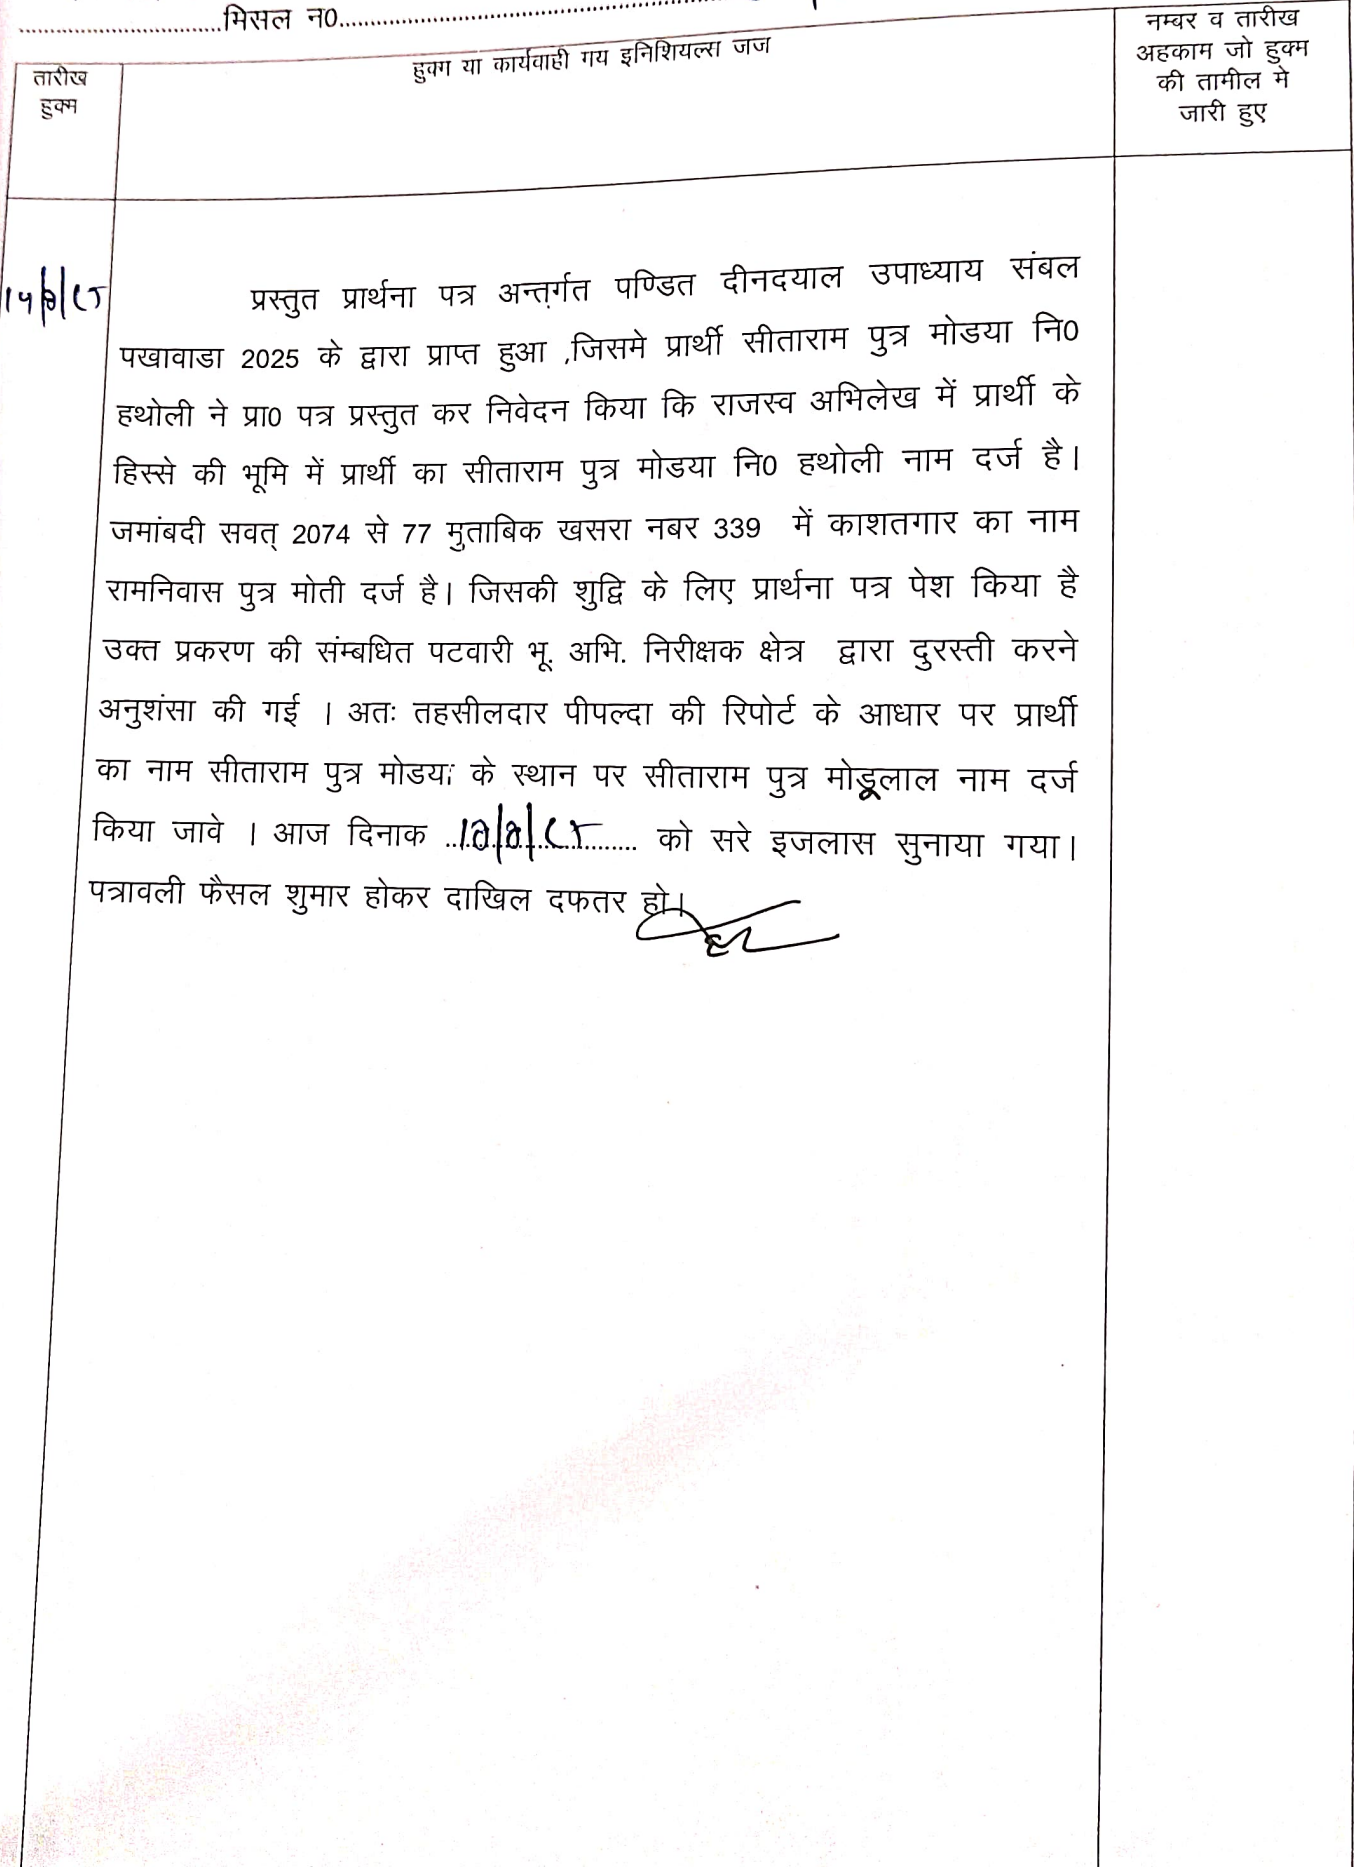 ..............................मिसल न0..................................................
तारीख
हुक्म
हुक्म या कार्यवाही गय इनिशियल्स जज
नम्बर व तारीख
अहकाम जो हुक्म
की तामील मे
जारी हुए
प्रस्तुत प्रार्थना पत्र अन्तर्गत पण्डित दीनदयाल उपाध्याय संबल
पखावाडा 2025 के द्वारा प्राप्त हुआ ,जिसमे प्रार्थी सीताराम पुत्र मोडया नि0
हथोली ने प्रा0 पत्र प्रस्तुत कर निवेदन किया कि राजस्व अभिलेख में प्रार्थी के
हिस्से की भूमि में प्रार्थी का सीताराम पुत्र मोडया नि0 हथोली नाम दर्ज है।
जमांबदी सवत् 2074 से 77 मुताबिक खसरा नबर 339 में काशतगार का नाम
रामनिवास पुत्र मोती दर्ज है। जिसकी शुद्वि के लिए प्रार्थना पत्र पेश किया है
उक्त प्रकरण की संम्बधित पटवारी भू. अभि. निरीक्षक क्षेत्र द्वारा दुरस्ती करने
अनुशंसा की गई । अतः तहसीलदार पीपल्दा की रिपोर्ट के आधार पर प्रार्थी
का नाम सीताराम पुत्र मोडया के स्थान पर सीताराम पुत्र मोडूलाल नाम दर्ज
किया जावे । आज दिनाक .................... को सरे इजलास सुनाया गया।
पत्रावली फैसल शुमार होकर दाखिल दफतर हो।